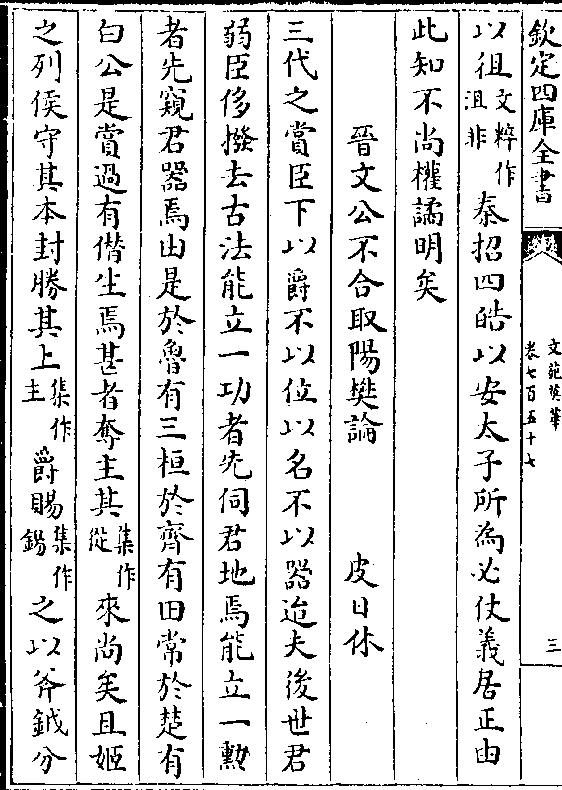 欽定四庫全書
文苑英華
卷七百五十七
三
以徂文粹作沮非秦招四皓以安太子所為必仗義居正由
此知不尚權譎明矣
晉文公不合取陽樊論　皮日休
三代之賞臣下以爵不以位以名不以器迨夫後世君
弱臣侈撥去古法能立一功者先伺君地焉能立一勲
者先窺君器焉由是於魯有三桓於齊有田常於楚有
白公是賞過有僭生焉甚者奪主其集作從來尚矣且姬
之列侯守其本封勝其上集作主爵賜集作錫之以斧鉞分